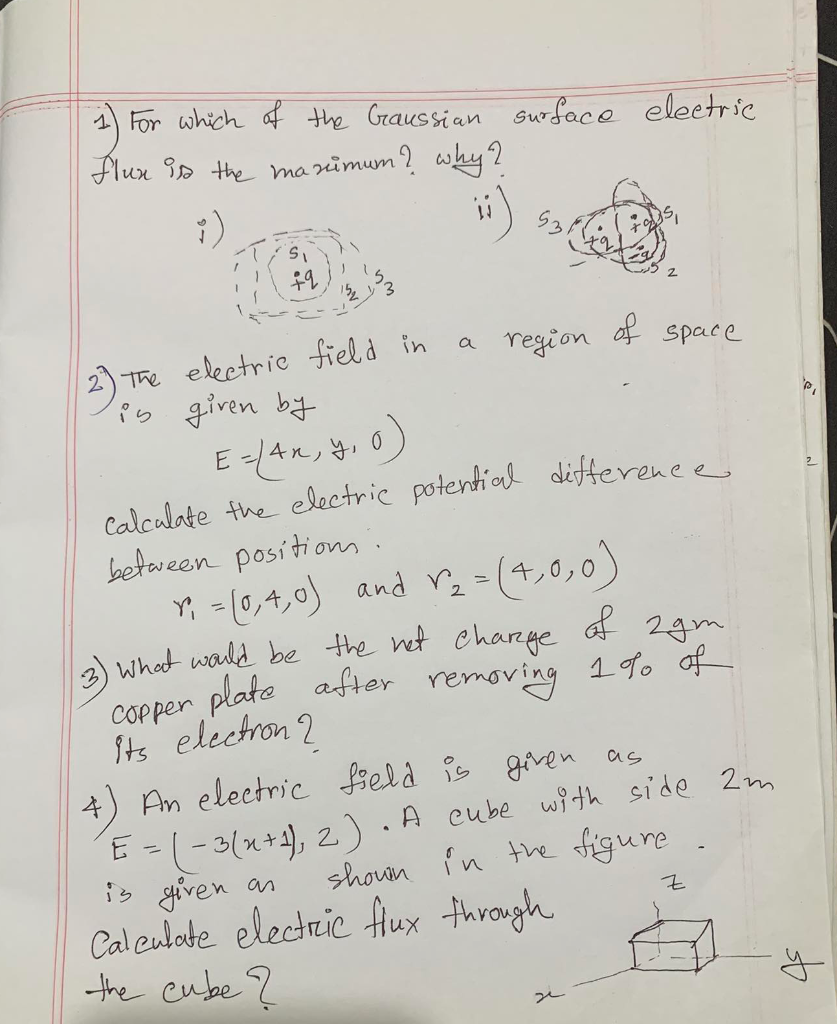 1) For which of the Gaussian surface electric
flux is the maximum? why?
i)
ii)
S1
+q
S2
S3
S3
+q
+q
S1
-q
S2
2) The electric field in a region of space
is given by
E = (4x, y, 0)
Calculate the electric potential difference
between positions.
r1 = (0,4,0) and r2 = (4,0,0)
3) What would be the net charge of 2gm
copper plate after removing 1% of
its electron?
4) An electric field is given as
E = (-3(x+1), 2). A cube with side 2m
is given as shown in the figure.
Calculate electric flux through
the cube?
z
y
x